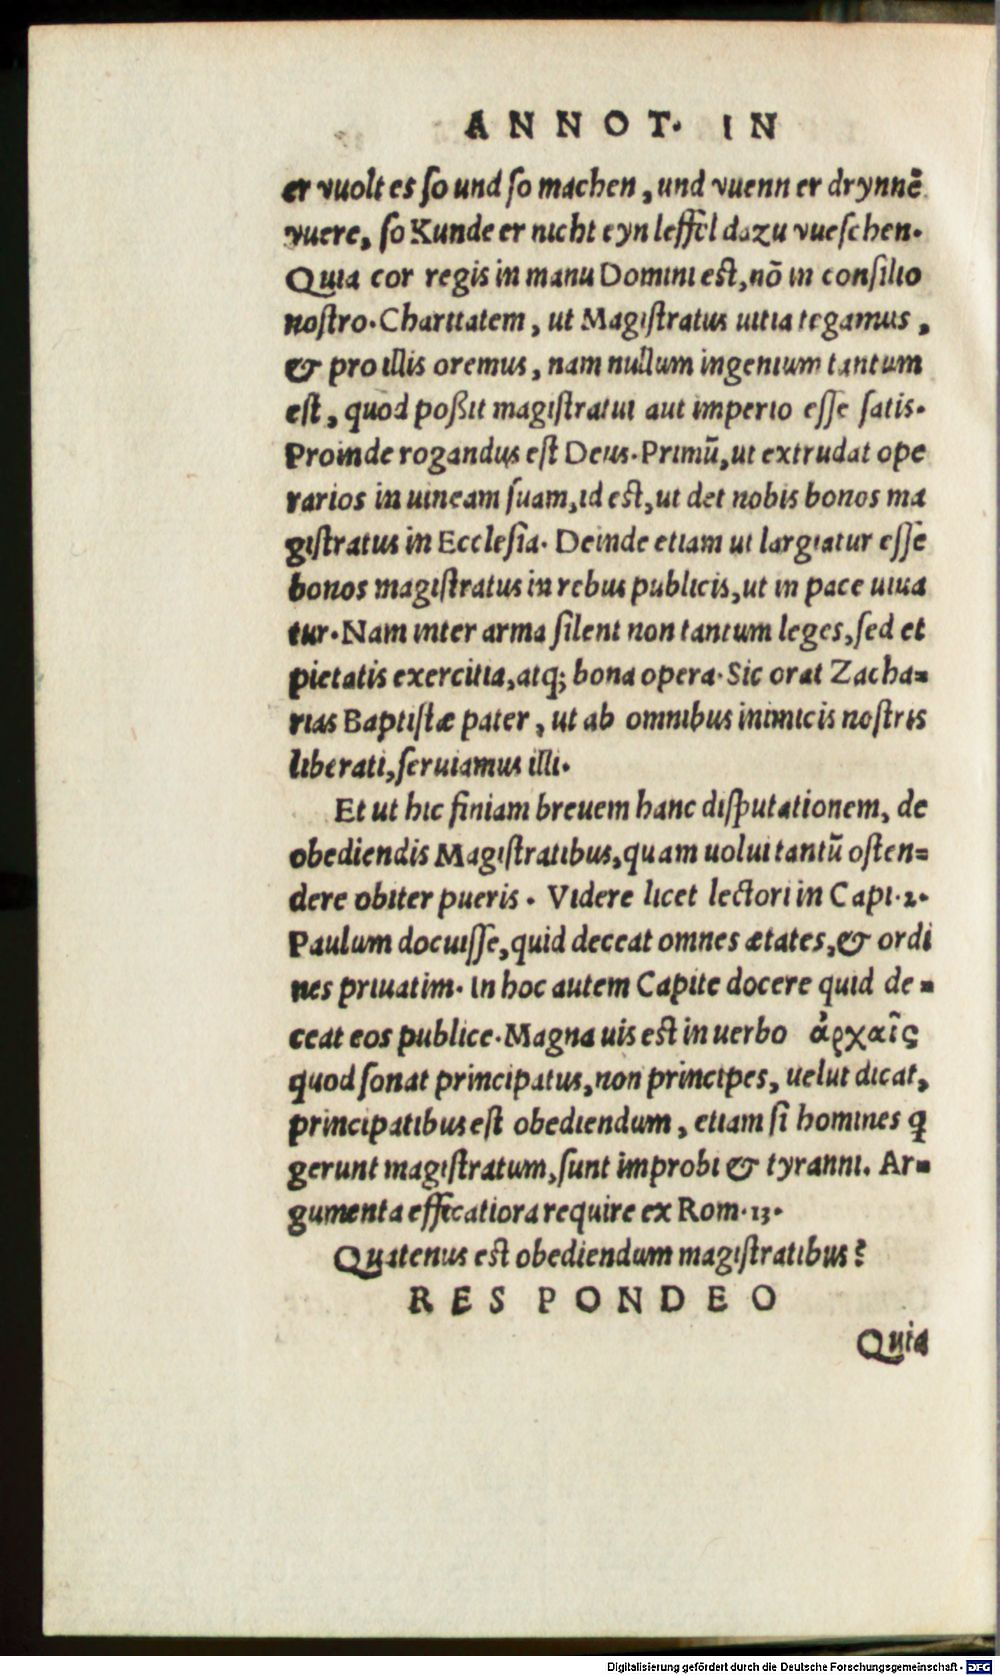 ANNOT. IN
er vuolt es ſo und ſo machen, und vuenn er drynnē
vuere, ſo Kunde er nicht eyn leffel dazu vueſchen.
Quia cor regis in manu Domini eſt, nō in conſilio
noſtro. Charitatem, ut Magiſtratus uitia tegamus,
& pro illis oremus, nam nullum ingenium tantum
eſt, quod poßit magiſtratui aut imperio eſſe ſatis.
Proinde rogandus eſt Deus. Primū, ut extrudat ope
rarios in uineam ſuam, id eſt, ut det nobis bonos ma
giſtratus in Eccleſia. Deinde etiam ut largiatur eſſe
bonos magiſtratus in rebus publicis, ut in pace uiua
tur. Nam inter arma ſilent non tantum leges, ſed et
pietatis exercitia, atq; bona opera. Sic orat Zacha=
rias Baptiſtæ pater, ut ab omnibus inimicis noſtris
liberati, ſeruiamus illi.
Et ut hic finiam breuem hanc diſputationem, de
obediendis Magiſtratibus, quam uolui tantū oſten=
dere obiter pueris. Videre licet lectori in Capi. 2.
Paulum docuiſſe, quid deceat omnes ætates, & ordi
nes priuatim. In hoc autem Capite docere quid de=
ceat eos publice. Magna uis eſt in uerbo ἀρχαῖς
quod ſonat principatus, non principes, uelut dicat,
principatibus eſt obediendum, etiam ſi homines ꝗ
gerunt magiſtratum, ſunt improbi & tyranni. Ar=
gumenta efficatiora require ex Rom. 13.
Quatenus eſt obediendum magiſtratibus?
RESPONDEO
Quia
Digitalisierung gefördert durch die Deutsche Forschungsgemeinschaft - DFG